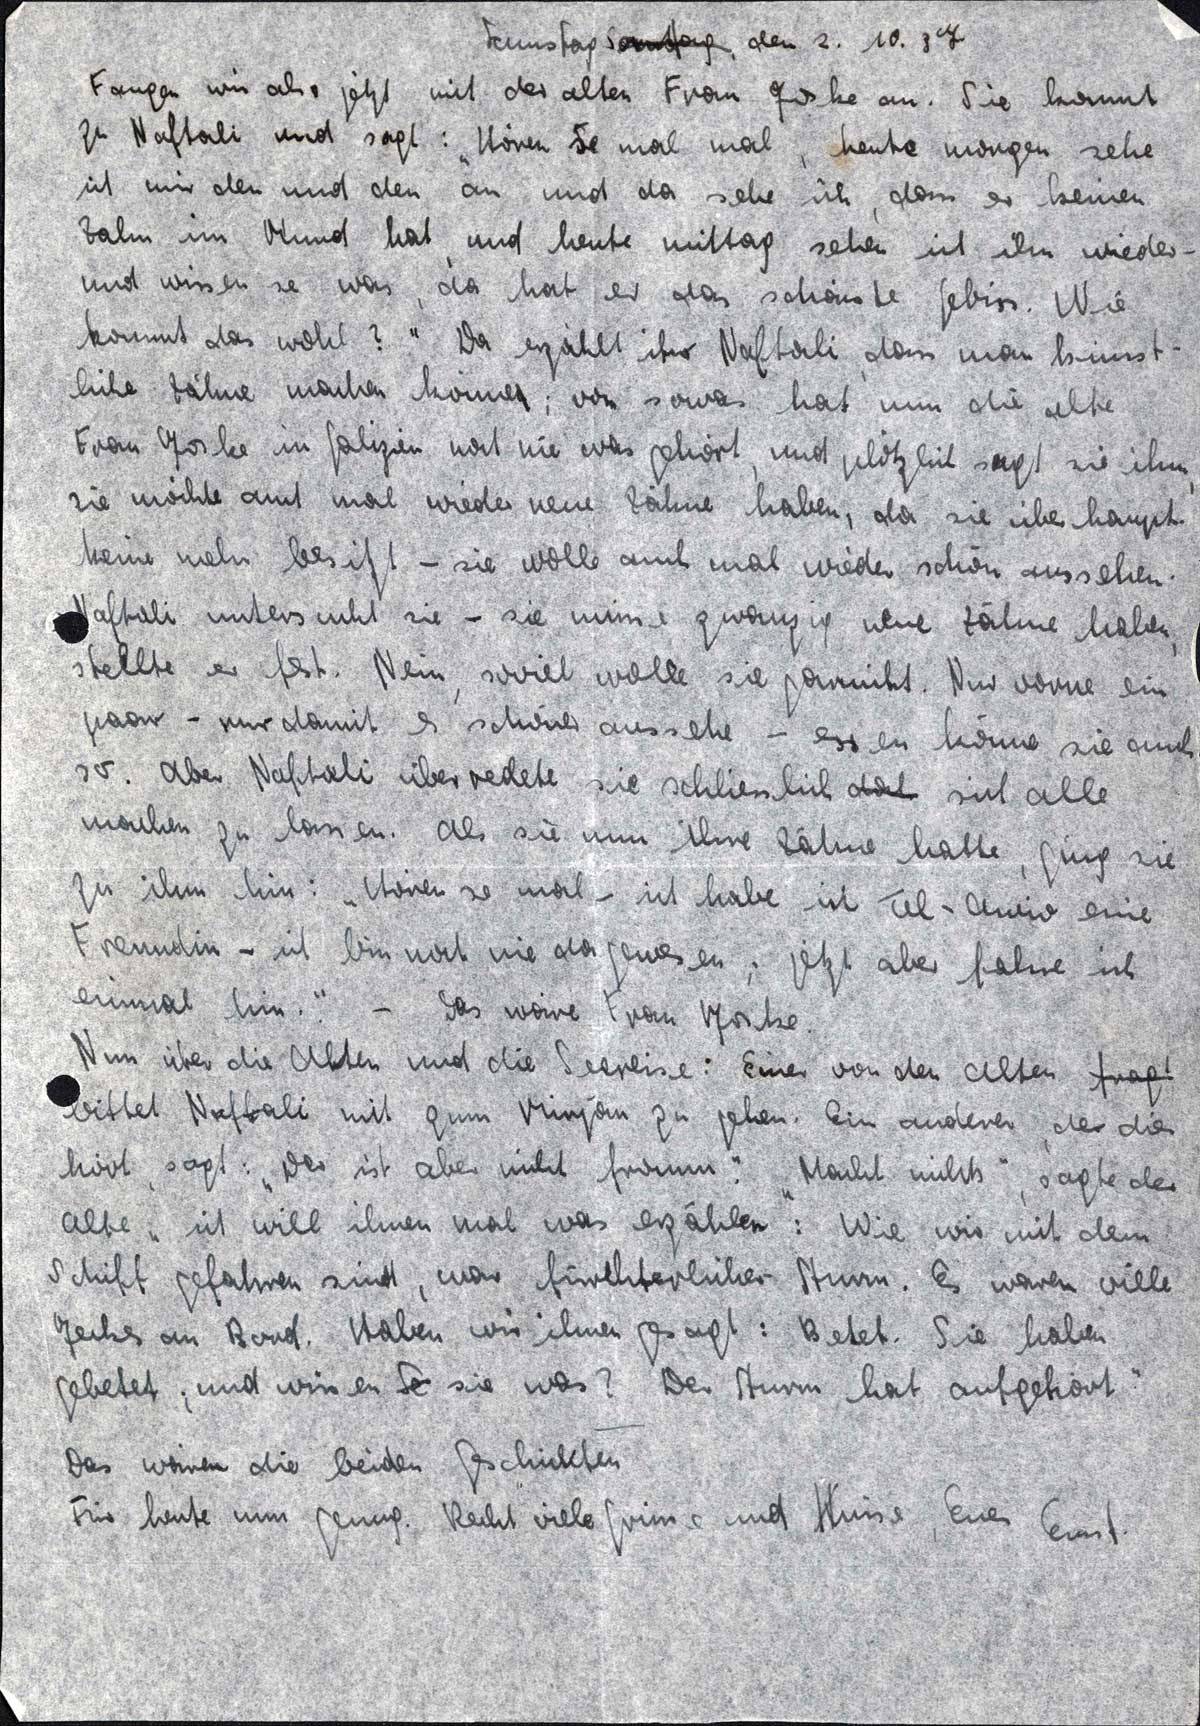 Samstag Sonntag, den 2. 10. 37
Fangen wir also jetzt mit der alten Frau Joske an. Sie kommt
zu Naftali und sagt: „Hören Se mal mal, heute morgen sehe
ich mir den und den an und da sehe ich, dass er keinen
Zahn im Mund hat, und heute mittag sehen ich ihn wieder-
und wissen se was, da hat er das schönste Gebiss. Wie
kommt das wohl?" Da erzählt ihr Naftali, dass man künst-
liche Zähne machen könne; von sowas hat nun die alte
Frau Joske in Galizien noch nie was gehört, und plötzlich sagt sie ihm,
sie möchte auch mal wieder neue Zähne haben, da sie überhaupt
keine mehr besitzt – sie wolle auch mal wieder schön aussehen.
Naftali untersucht sie – sie müsse zwanzig neue Zähne haben,
stellte er fest. Nein, soviel wolle sie garnicht. Nur vorne ein
paar – nur damit es schöner aussehe – essen könne sie auch
so. Aber Naftali überredete sie schliesslich sich alle
machen zu lassen. Als sie nun ihre Zähne hatte, ging sie
zu ihm hin: „Hören se mal – ich habe ich Tel-Aviv eine
Freundin – ich bin noch nie dagewesen; jetzt aber fahre ich
einmal hin." – Das wäre Frau Joske.
Nun über die Alten und die Seereise: Einer von den Alten fragt
bittet Naftali mit zum Minjan zu gehen. Ein anderer, der dies
hört, sagt: „Der ist aber nicht fromm." „Macht nichts", sagte der
Alte „ich will ihnen mal was erzählen: Wie wir mit dem
Schiff gefahren sind, war fürchterlicher Sturm. Es waren viele
Jeckes an Bord. Haben wir ihnen gesagt: Betet. Sie haben
gebetet; und wissen Se sie was? Der Sturm hat aufgehört"
Das wären die beiden Geschichten
Für heute nun genug. Recht viele Grüsse und Küsse, Euer Ernst.